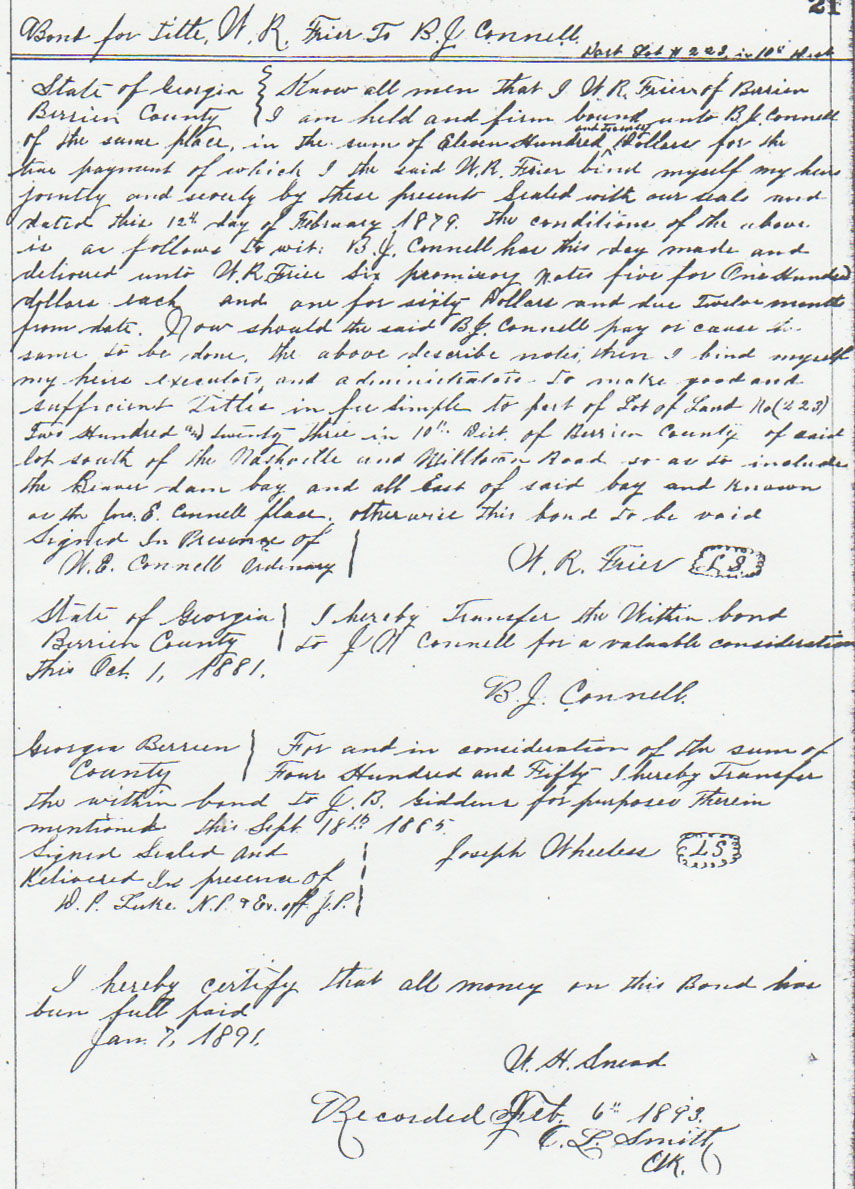 21
Bond for Title, W. R. Frier To B J Connell
Part Lot # 223, in 10th Dist
State of Georgia Know all men that I W R. Frier of Berrien
Berrien County I am held and firm bound unto B. J. Connell
of the same place, in the sum of Eleven Hundred and twenty Dollars for the
true payment of which I the said W. R. Frier bind myself my heirs
jointly and severly by these presents Sealed with our seals and
dated this 12th day of February 1879. the conditions of the above
is as follows to wit: B. J. Connell has this day made and
delivered unto W. R Frier Six promissory notes five for One Hundred
dollars each and one for sixty Dollars and due Twelve months
from date. Now should the said B J. Connell pay or cause the
same to be done, the above describe notes, then I bind myself
my heirs executors, and administrators to make good and
sufficient Titles in fee simple to part of Lot of Land No (223)
Two Hundred and twenty three in 10th Dist. of Berrien County of said
lot south of the Nashville and Milltown Road so as to include
the Beaver dam bay and all East of said bay and known
as the Jno. E. Connell place. otherwise this bond to be void
Signed In Presence of
W. E. Connell Ordinary W. R. Frier L S.
State of Georgia I hereby Transfer the Within bond
Berrien County to J N Connell for a valuable consideration
this Oct. 1, 1881.
B. J. Connell.
Georgia Berrien For and in consideration of the sum of
County Four Hundred and Fifty I hereby Transfer
the within bond to J. B. Giddens for purposes therein
mentioned this Sept. 18th 1885.
Signed Sealed and Joseph Wheeless L S
Delivered In presence of
W. P. Luke. N. P. & Ex. off J. P.
I hereby certify that all money on this Bond has
been full paid
Jan. 7, 1891.
W. H. Snead
Recorded Feb. 6th 1893.
Smith
Clk.